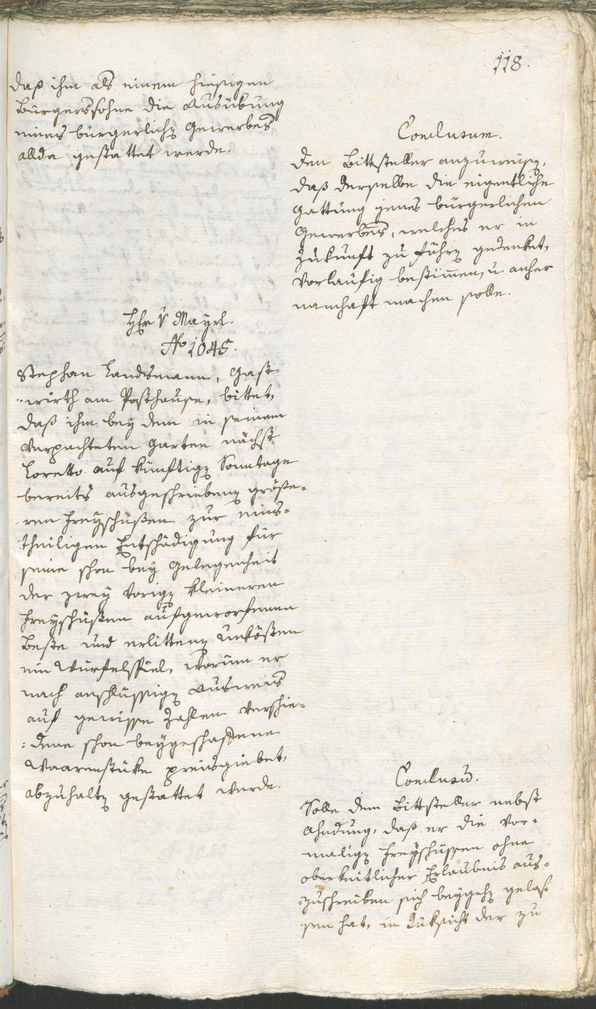 118.
daß ihm als einem hiesigen
Bürgerssohne die Ausübung
eines bürgerlichen Gewerbes
allda gestattet werde.
Conclusum.
Dem Bittsteller anzuweisen,
daß derselbe die eigentliche
Gattung jenes bürgerlichen
Gewerbes, welches er in
Zukunft zu führen gedenket,
vorläufig bestimmen, u. anher
namhaft machen solle.
Hr. v Mayrl.
No 1045.
Stephan Landsmann, Gast-
wirth am Posthause, bittet,
daß ihm bey dem in seinem
verpachteten Garten nächst
Loretto auf künftigen Sonntage
bereits ausgeschriebenen größe-
ren Freyschüßen zur eins-
theiligen Entschädigung für
seine schon bey Gelegenheit
der zwey vorigen kleineren
Freyschüßen aufgeworfenen
Beste und erlittenen Unkösten
ein Würfelspiel, worum er
nach anschlüssigen Ausweis
auf gewisse Zahlen verschie-
dene schon beygeschaffene
Waarenstücke preisgiebet,
abzuhalten gestattet werde.
Conclusum.
Solle dem Bittsteller nebst
Ahndung, daß er die vor-
maligen Freyschüssen ohne
obrigkeitlicher Erlaubnis aus-
zuschreiben sich beygehen gelas-
sen hat, in Rüksicht der zu